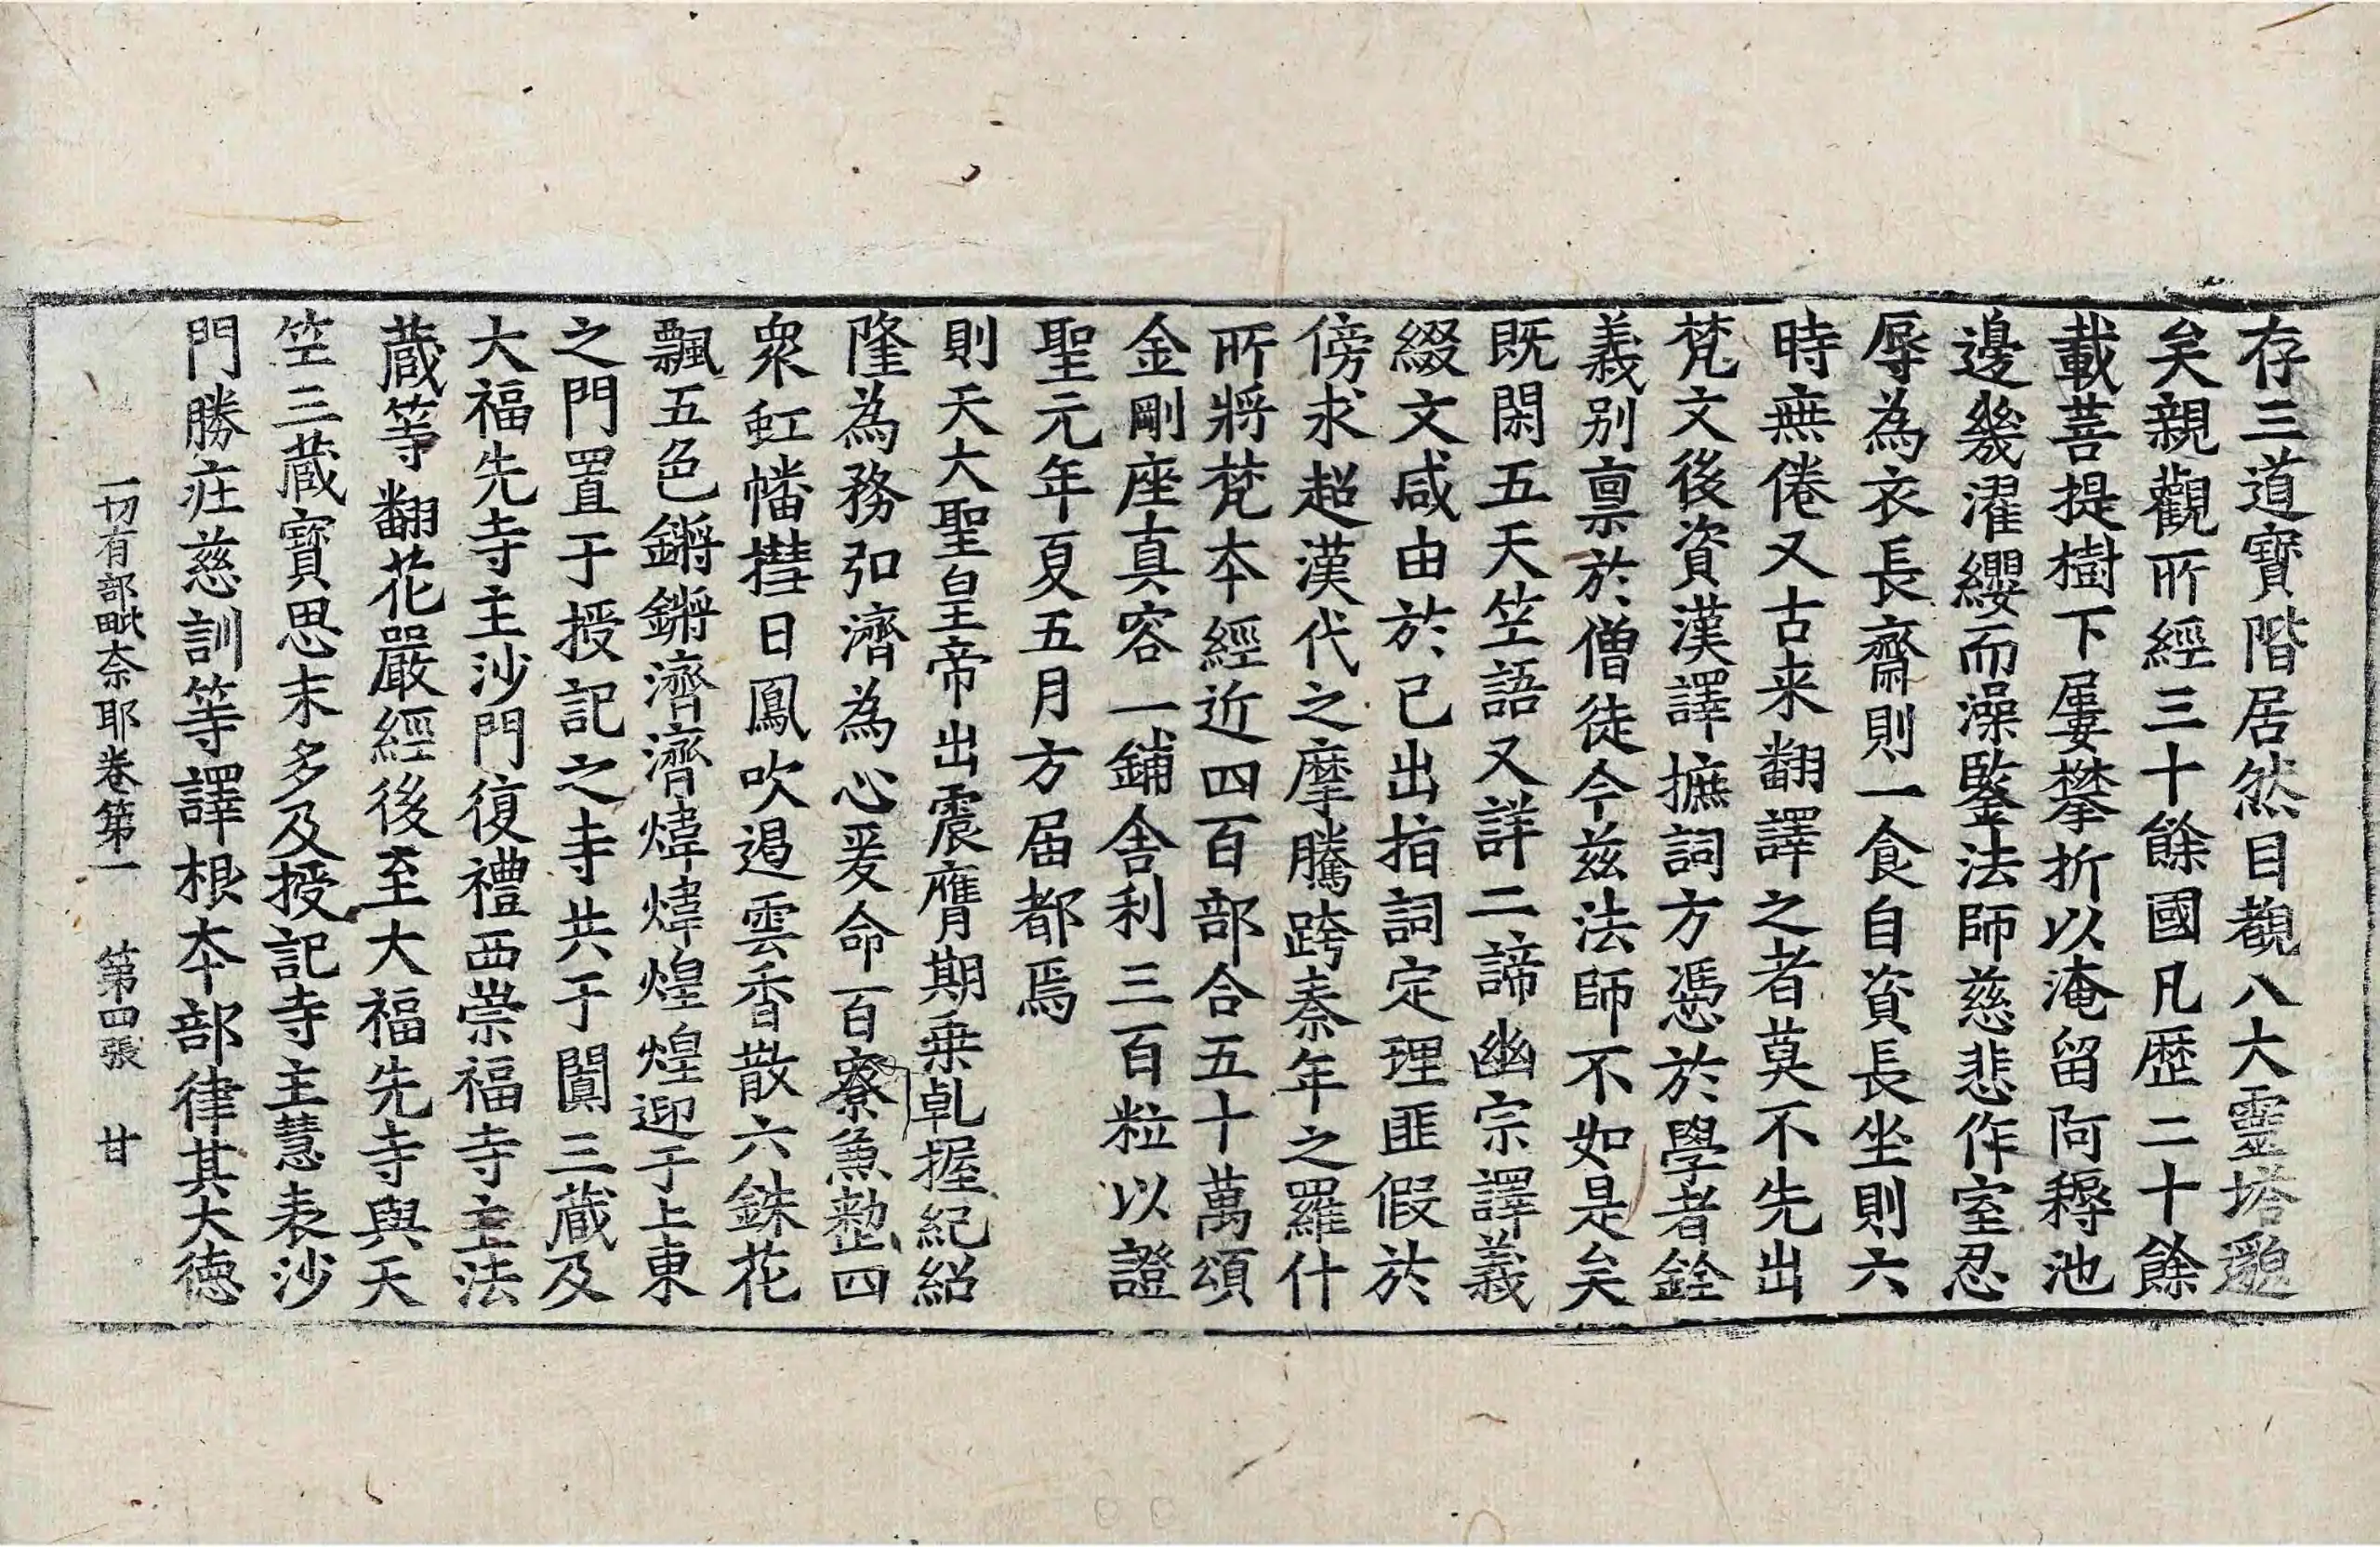 存三道寶階居然目覩八大靈塔邈
矣親觀所經三十餘國凡歷二十餘
載菩提樹下屢攀折以淹留阿耨池
邊幾濯纓而澡鑒法師慈悲作室忍
辱為衣長齋則一食自資長坐則六
時無倦又古来翻譯之者莫不先出
梵文後資漢譯摭詞方憑於學者銓
義別稟於僧徒今兹法師不如是矣
既閑五天竺語又詳二諦幽宗譯義
綴文咸由於己出指詞定理匪假於
傍求超漢代之摩騰跨秦年之羅什
所將梵本經近四百部合五十萬頌
金剛座真容一鋪舍利三百粒以證
聖元年夏五月方届都焉
則天大聖皇帝出震膺期乗乹握紀紹
隆為務弘濟為心爰命百寮兼整四
衆虹幡㩤日鳳吹遏雲香散六銖花
飄五色鏘鏘濟濟煒煒煌煌迎于上東
之門置于授記之寺共于闐三蔵及
大福先寺主沙門復禮西崇福寺主法
蔵等翻花嚴經後至大福先寺與天
竺三蔵寶思末多及授記寺主慧表沙
門勝荘慈訓等譯根本部律其大德
一切有部毗奈耶卷第一 第四張 甘